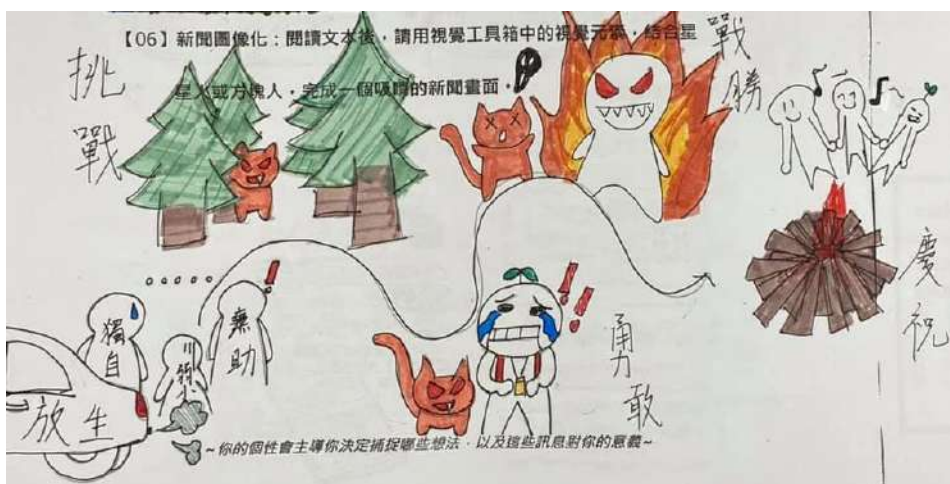 【06】新聞圖像化：閱讀文本後，請用視覺工具箱中的視覺元素，結合星
星人或方塊人，完成一個吸睛的新聞畫面。
挑戰
戰勝
慶祝
獨自
弱小
無助
勇敢
放生
~你的個性會主導你決定捕捉哪些想法，以及這些訊息對你的意義~